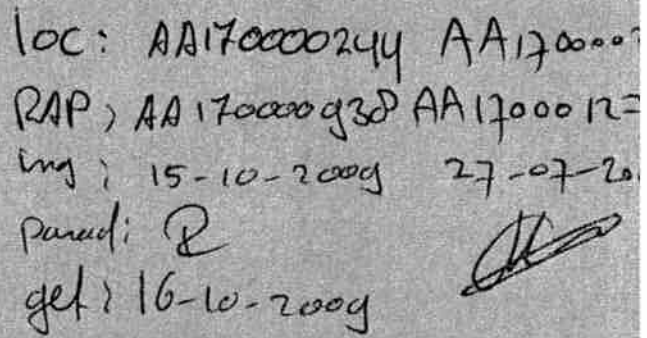 loc: AA170000244 AA170000
RAP: AA170000938 AA1700012
ing: 15-10-2009 27-07-20
paraaf: R
get: 16-10-2009